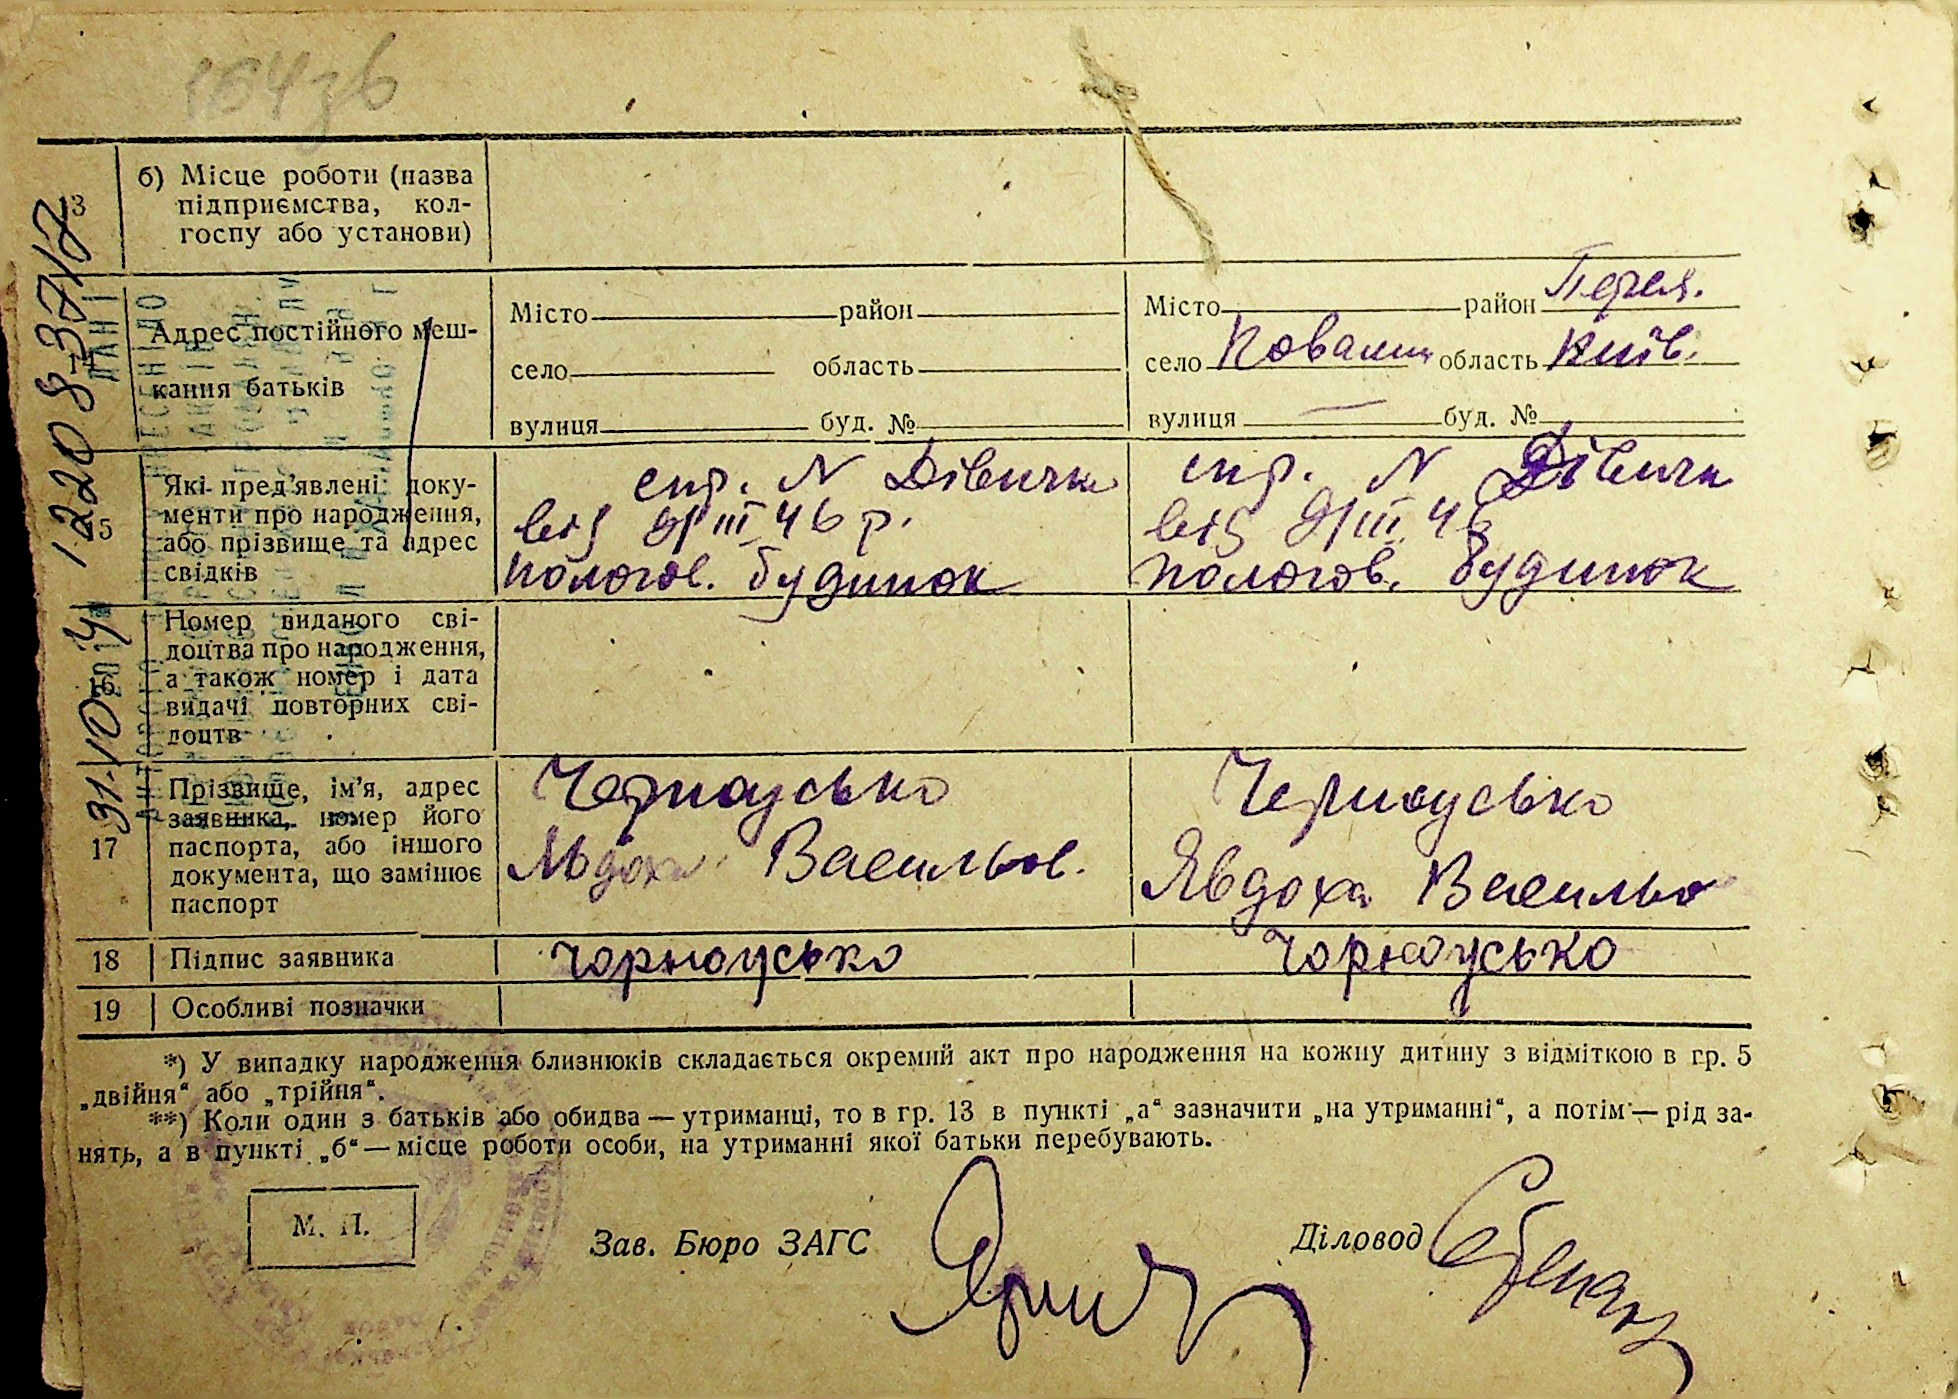 13
б) Місце роботи (назва
підприємства, кол-
госпу або установи)
Адрес постійного меш-
кання батьків
Місто район
село область
вулиця буд. №
Місто район Перея.
село Ковалин область Київ.
вулиця — буд. №
15
Які пред'явлені доку-
менти про народження,
або прізвище та адрес
свідків
спр. N Дівички
від 9/III 46 р.
пологов. будинок
спр. N Дівички
від 9/III 46
пологов. будинок
16
Номер виданого сві-
доцтва про народження,
а також номер і дата
видачі повторних сві-
доцтв
17
Прізвище, ім'я, адрес
заявника, номер його
паспорта, або іншого
документа, що замінює
паспорт
Черноусько
Явдоха Васильов.
Черноусько
Явдоха Василь
18 Підпис заявника чорноусько Чорноусько
19 Особливі позначки
*) У випадку народження близнюків складається окремий акт про народження на кожну дитину з відміткою в гр. 5
„двійня“ або „трійня“.
**) Коли один з батьків або обидва — утриманці, то в гр. 13 в пункті „а“ зазначити „на утриманні“, а потім — рід за-
нять, а в пункті „б“ — місце роботи особи, на утриманні якої батьки перебувають.
М. П.
Зав. Бюро ЗАГС
Діловод